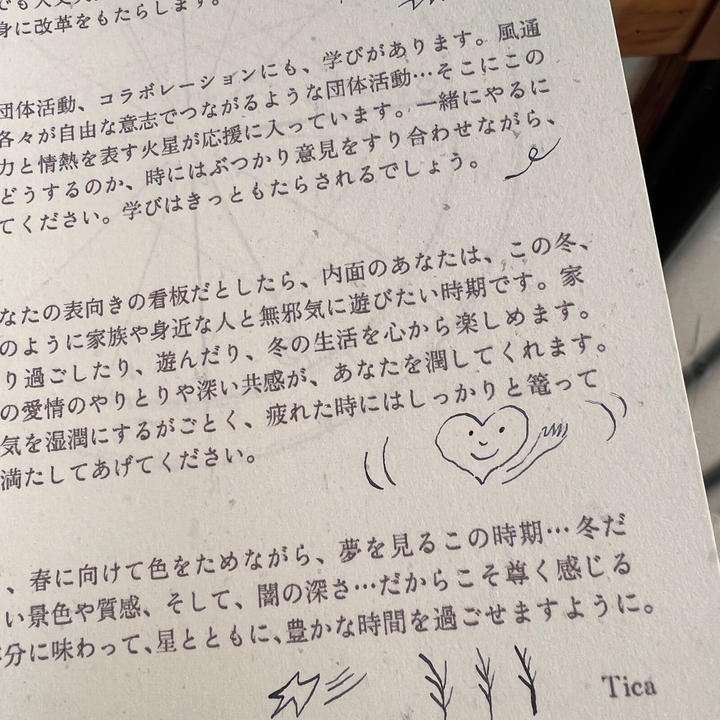 身に改革をもたらします。
団体活動、コラボレーションにも、学びがあります。風通
各々が自由な意志でつながるような団体活動…そこにこの
力と情熱を表す火星が応援に入っています。一緒にやるに
どうするのか、時にはぶつかり意見をすり合わせながら、
てください。学びはきっともたらされるでしょう。
なたの表向きの看板だとしたら、内面のあなたは、この冬、
のように家族や身近な人と無邪気に遊びたい時期です。家
り過ごしたり、遊んだり、冬の生活を心から楽しめます。
の愛情のやりとりや深い共感が、あなたを潤してくれます。
気を湿潤にするがごとく、疲れた時にはしっかりと篭って
満たしてあげてください。
、春に向けて色をためながら、夢を見るこの時期…冬だ
い景色や質感、そして、闇の深さ…だからこそ尊く感じる
分に味わって、星とともに、豊かな時間を過ごせますように。
Tica